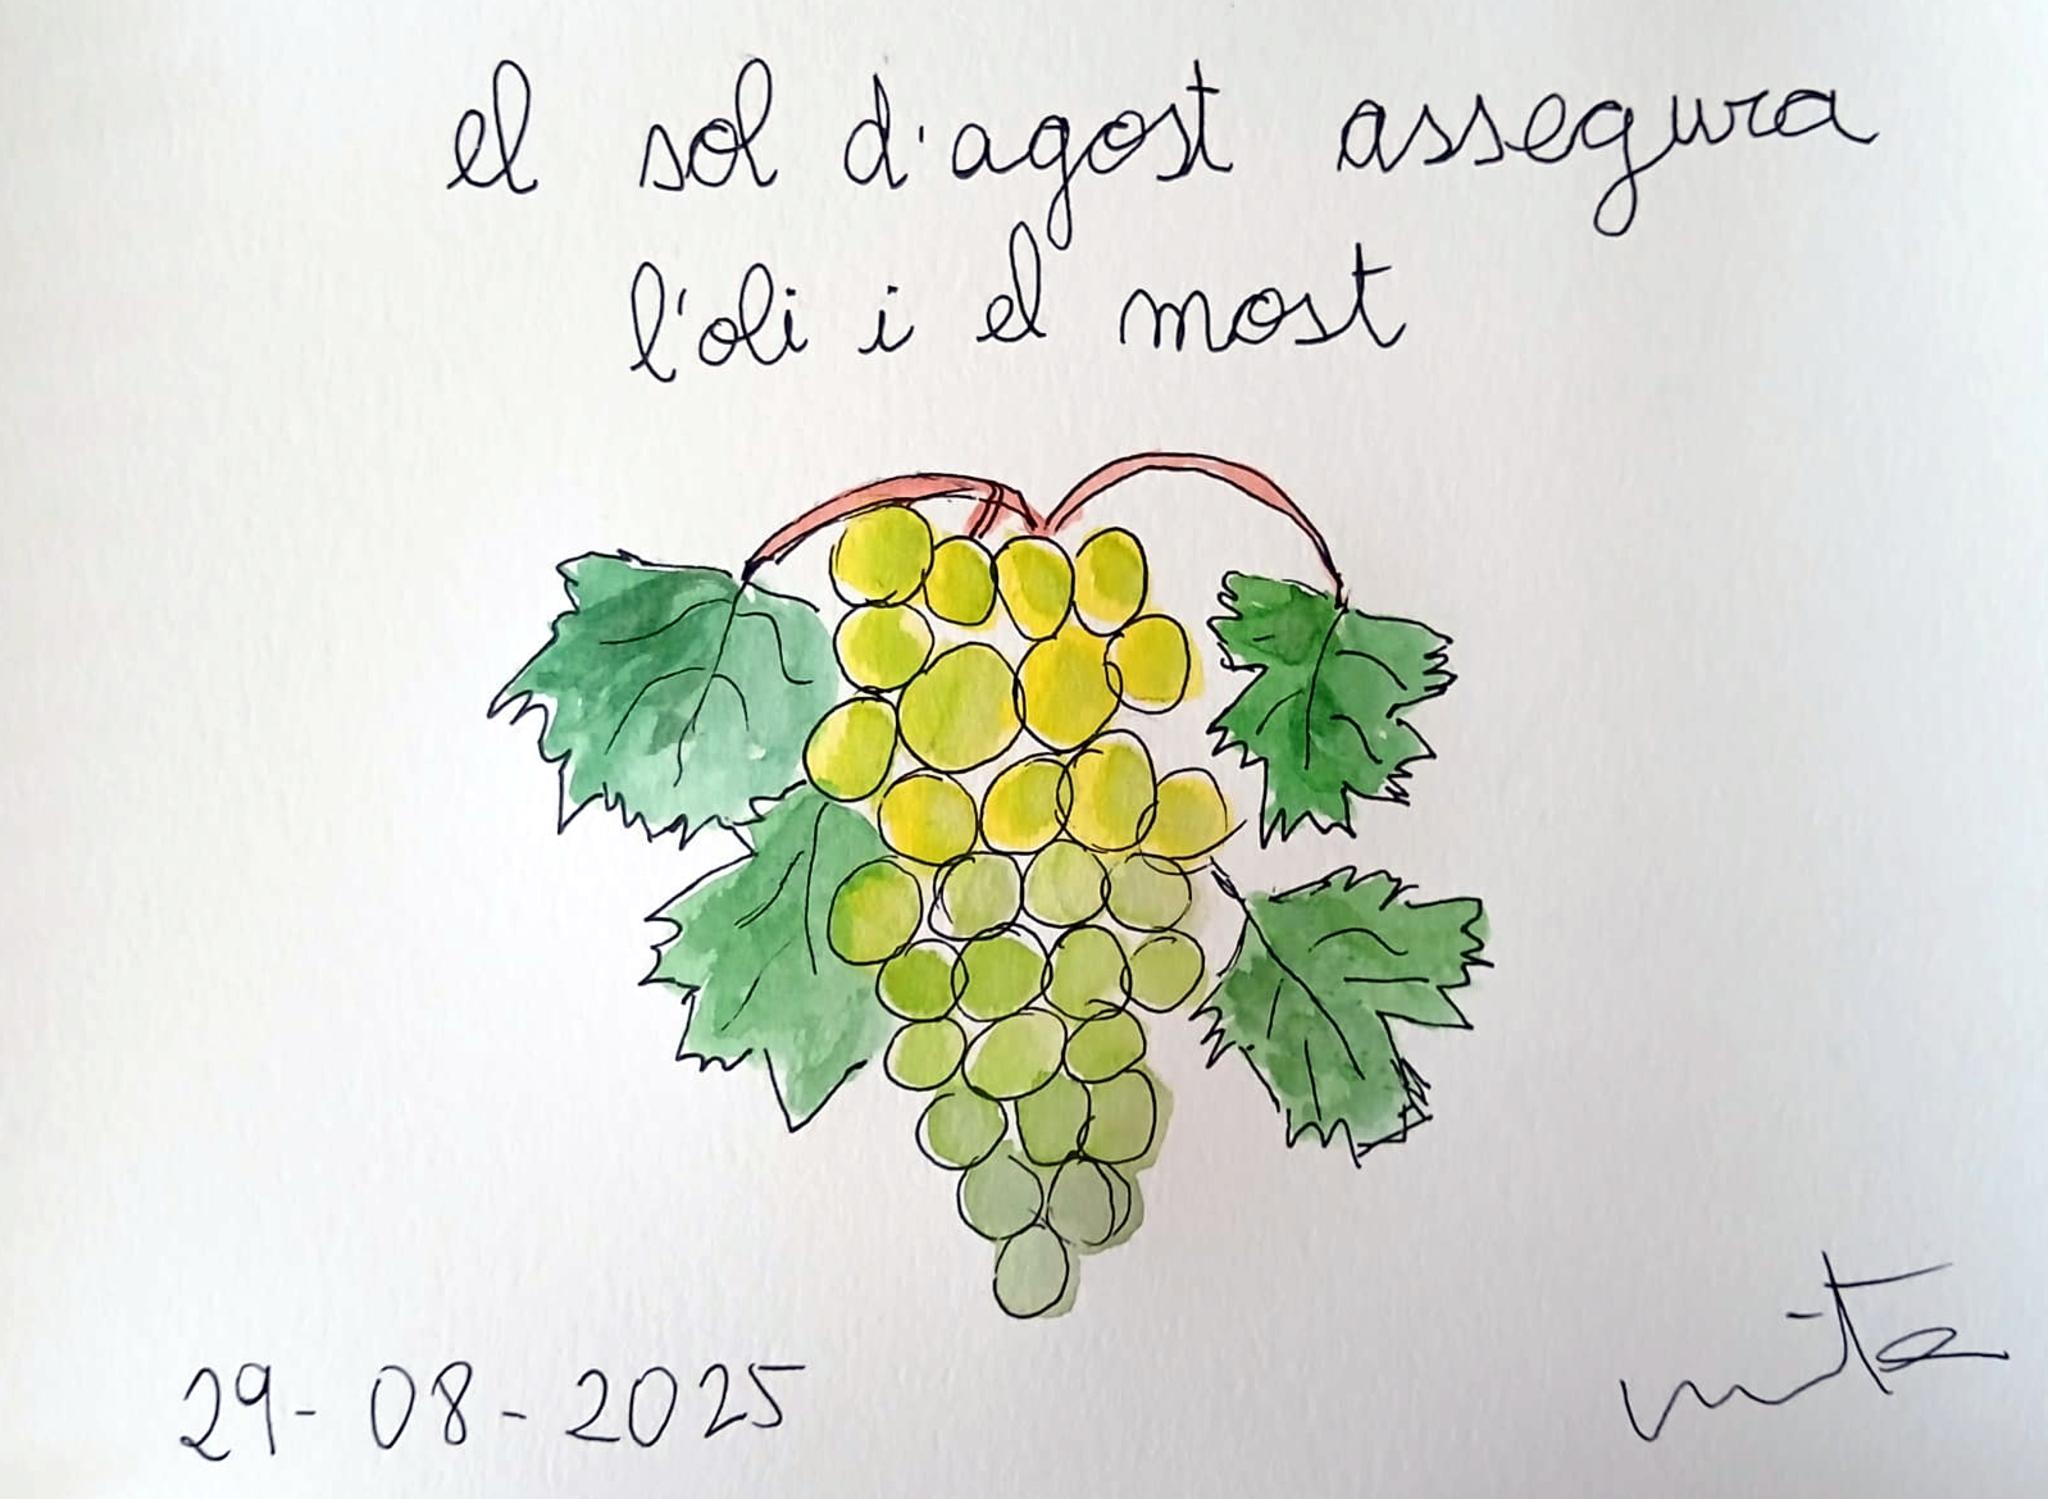 el sol d'agost assegura
l'oli i el most
29-08-2025